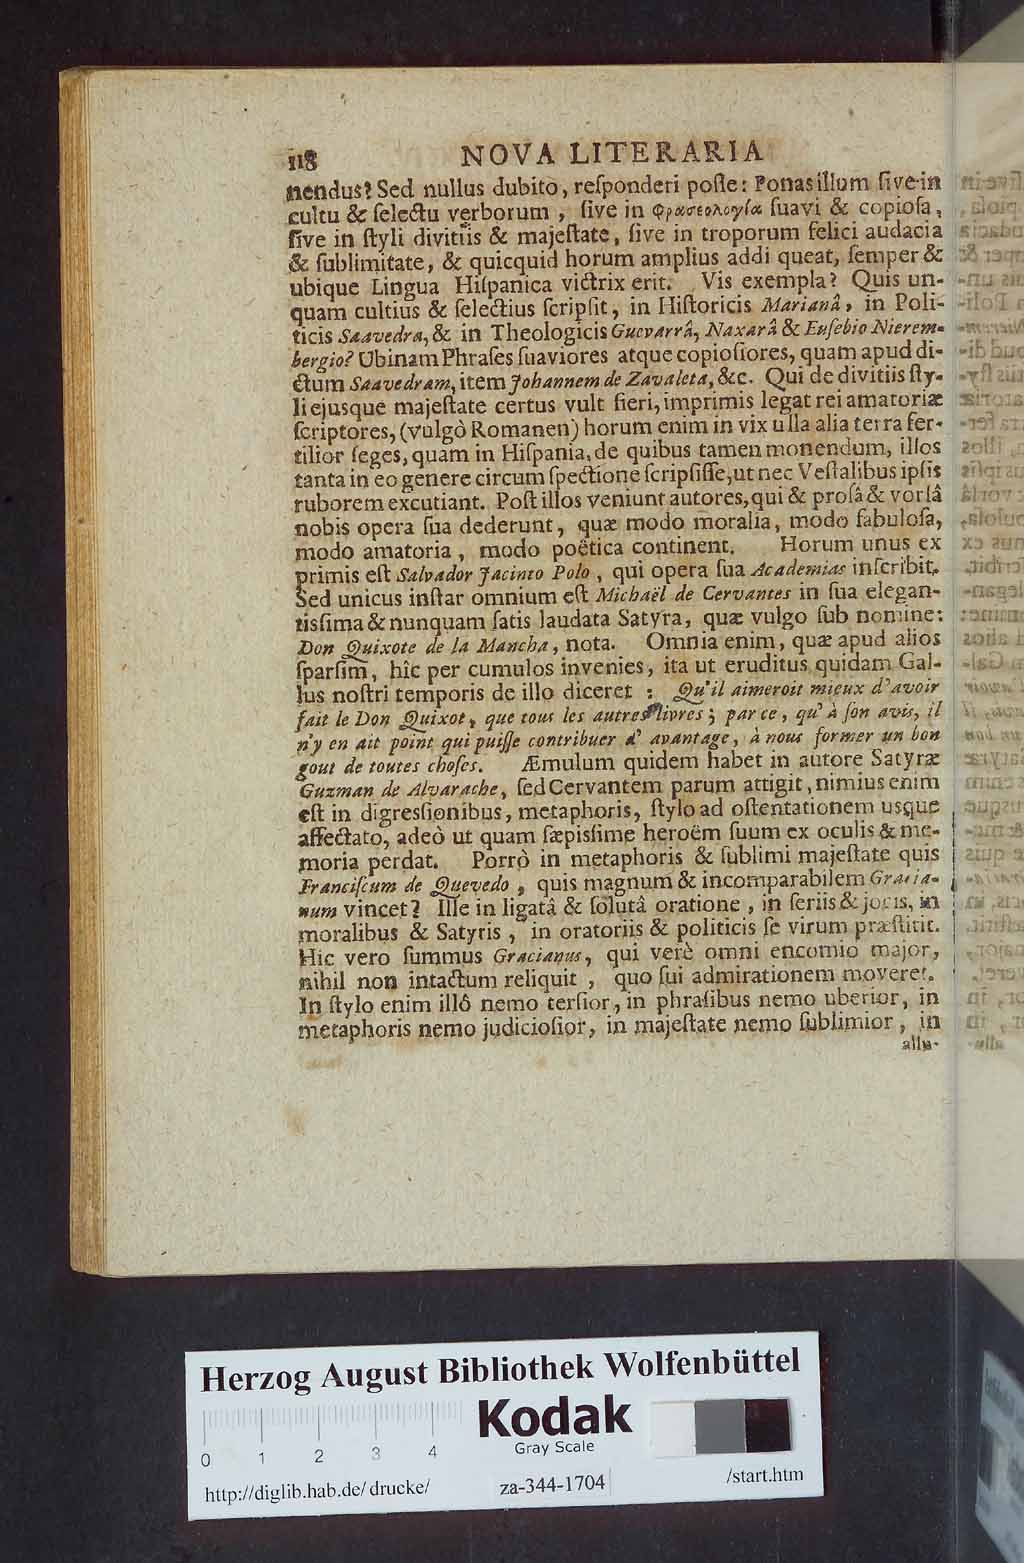 118 NOVA LITERARIA
nendus? Sed nullus dubito, reſponderi poſſe: Ponas illum ſive in
cultu & ſelectu verborum, ſive in Φρασεολογίᾳ ſuavi & copioſa,
ſive in ſtyli divitiis & majeſtate, ſive in troporum felici audacia
& ſublimitate, & quicquid horum amplius addi queat, ſemper &
ubique Lingua Hiſpanica victrix erit. Vis exempla? Quis un-
quam cultius & ſelectius ſcripſit, in Hiſtoricis Marianâ, in Poli-
ticis Saavedra, & in Theologicis Guevarrâ, Naxarâ & Euſebio Nierem-
bergio? Ubinam Phraſes ſuaviores atque copioſiores, quam apud di-
ctum Saavedram, item Johannem de Zavaleta, &c. Qui de divitiis ſty-
li ejusque majeſtate certus vult fieri, imprimis legat rei amatoriæ
ſcriptores, (vulgò Romanen) horum enim in vix ulla alia terra fer-
tilior ſeges, quam in Hiſpania, de quibus tamen monendum, illos
tanta in eo genere circumſpectione ſcripſiſſe, ut nec Veſtalibus ipſis
ruborem excutiant. Poſt illos veniunt autores, qui & proſâ & vorſâ
nobis opera ſua dederunt, quæ modo moralia, modo fabuloſa,
modo amatoria, modo poëtica continent. Horum unus ex
primis eſt Salvador Jacinto Polo, qui opera ſua Academias inſcribit.
Sed unicus inſtar omnium eſt Michaël de Cervantes in ſua elegan-
tisſima & nunquam ſatis laudata Satyra, quæ vulgo ſub nomine:
Don Quixote de la Mancha, nota. Omnia enim, quæ apud alios
ſparſim, hîc per cumulos invenies, ita ut eruditus quidam Gal-
lus noſtri temporis de illo diceret: Qu'il aimeroit mieux d'avoir
fait le Don Quixot, que tous les autres livres; par ce, qu' à ſon avis, il
n'y en ait point qui puiſſe contribuer d' avantage, à nous former un bon
gout de toutes choſes. Æmulum quidem habet in autore Satyræ
Guzman de Alvarache, ſed Cervantem parum attigit, nimius enim
eſt in digresſionibus, metaphoris, ſtylo ad oſtentationem usque
affectato, adeò ut quam ſæpisſime heroëm ſuum ex oculis & me-
moria perdat. Porrò in metaphoris & ſublimi majeſtate quis
Franciſcum de Quevedo, quis magnum & incomparabilem Gracia-
num vincet? Ille in ligatâ & ſolutâ oratione, in ſeriis & jocis, in
moralibus & Satyris, in oratoriis & politicis ſe virum præſtitit.
Hic vero ſummus Gracianus, qui verè omni encomio major,
nihil non intactum reliquit, quo ſui admirationem moveret.
In ſtylo enim illô nemo terſior, in phraſibus nemo uberior, in
metaphoris nemo judicioſior, in majeſtate nemo ſublimior, in
allu-
Herzog August Bibliothek Wolfenbüttel
Kodak
Gray Scale
0 1 2 3 4
http://diglib.hab.de/drucke/ za-344-1704 /start.htm